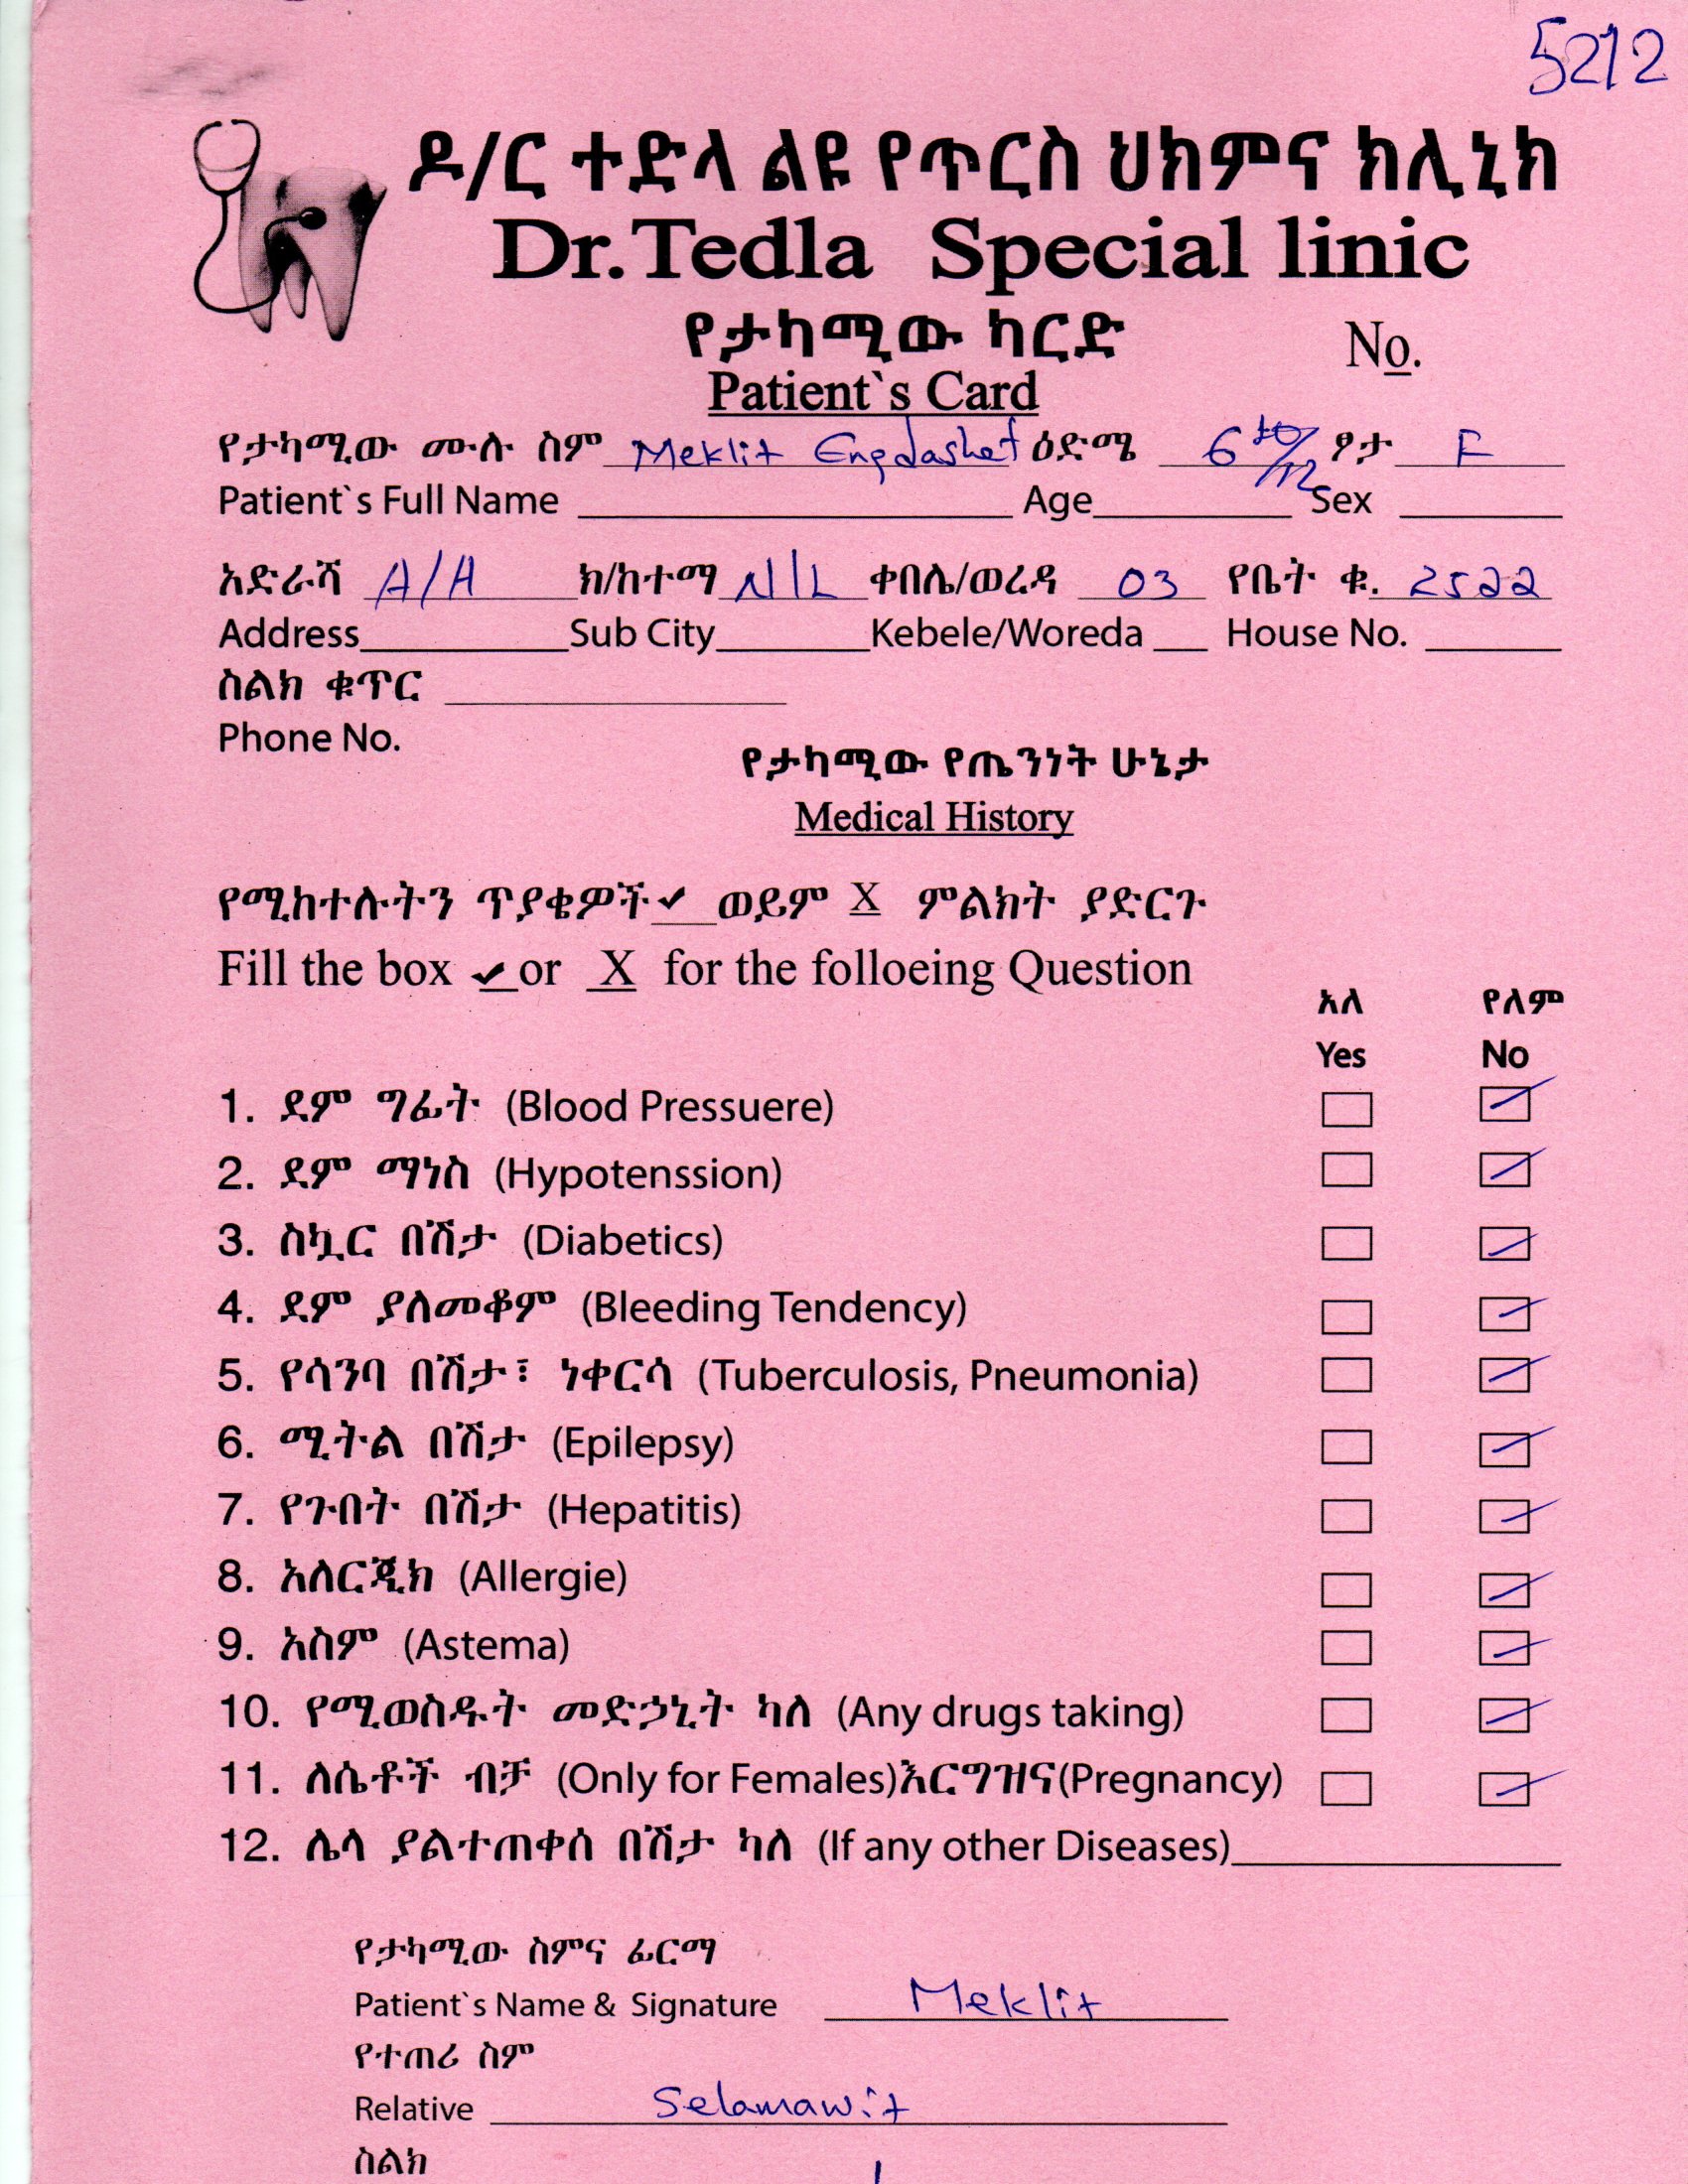 5212
ዶ/ር ተድላ ልዩ የጥርስ ህክምና ክሊኒክ
Dr.Tedla Special linic
የታካሚው ካርድ
No.
Patient`s Card
የታካሚው ሙሉ ስም Meklit Engdashet ዕድሜ 6 ፆታ F
Patient`s Full Name Age Sex
አድራሻ A/A ክ/ከተማ N/L ቀበሌ/ወረዳ 03 የቤት ቁ. 2522
Address Sub City Kebele/Woreda House No.
ስልክ ቁጥር
Phone No.
የታካሚው የጤንነት ሁኔታ
Medical History
የሚከተሉትን ጥያቄዎች ✔ ወይም X ምልክት ያድርጉ
Fill the box ✔ or X for the folloeing Question
አለ የለም
Yes No
1. ደም ግፊት (Blood Pressuere)
2. ደም ማነስ (Hypotenssion)
3. ስኳር በሽታ (Diabetics)
4. ደም ያለመቆም (Bleeding Tendency)
5. የሳንባ በሽታ፣ ነቀርሳ (Tuberculosis, Pneumonia)
6. ሚትል በሽታ (Epilepsy)
7. የጉበት በሽታ (Hepatitis)
8. አለርጂክ (Allergie)
9. አስም (Astema)
10. የሚወስዱት መድኃኒት ካለ (Any drugs taking)
11. ለሴቶች ብቻ (Only for Females)እርግዝና(Pregnancy)
12. ሌላ ያልተጠቀሰ በሽታ ካለ (If any other Diseases)
የታካሚው ስምና ፊርማ
Patient`s Name & Signature Meklit
የተጠሪ ስም
Relative Selamawit
ስልክ